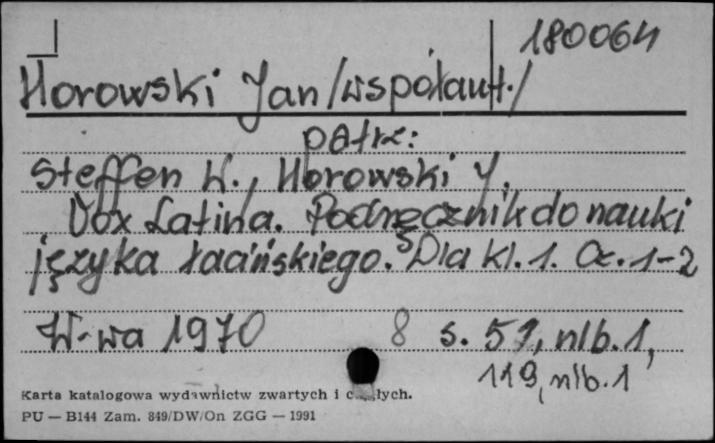 180064
Horowski Jan /współaut./
patrz:
Steffen W., Horowski J.
Vox Latina. Podręcznik do nauki
języka łacińskiego. Dla kl. 1. Cz. 1-2
W-wa 1970 8 s. 51, nlb. 1,
119, nlb. 1
Karta katalogowa wydawnictw zwartych i ciągłych.
PU — B144 Zam. 849/DW/On ZGG — 1991